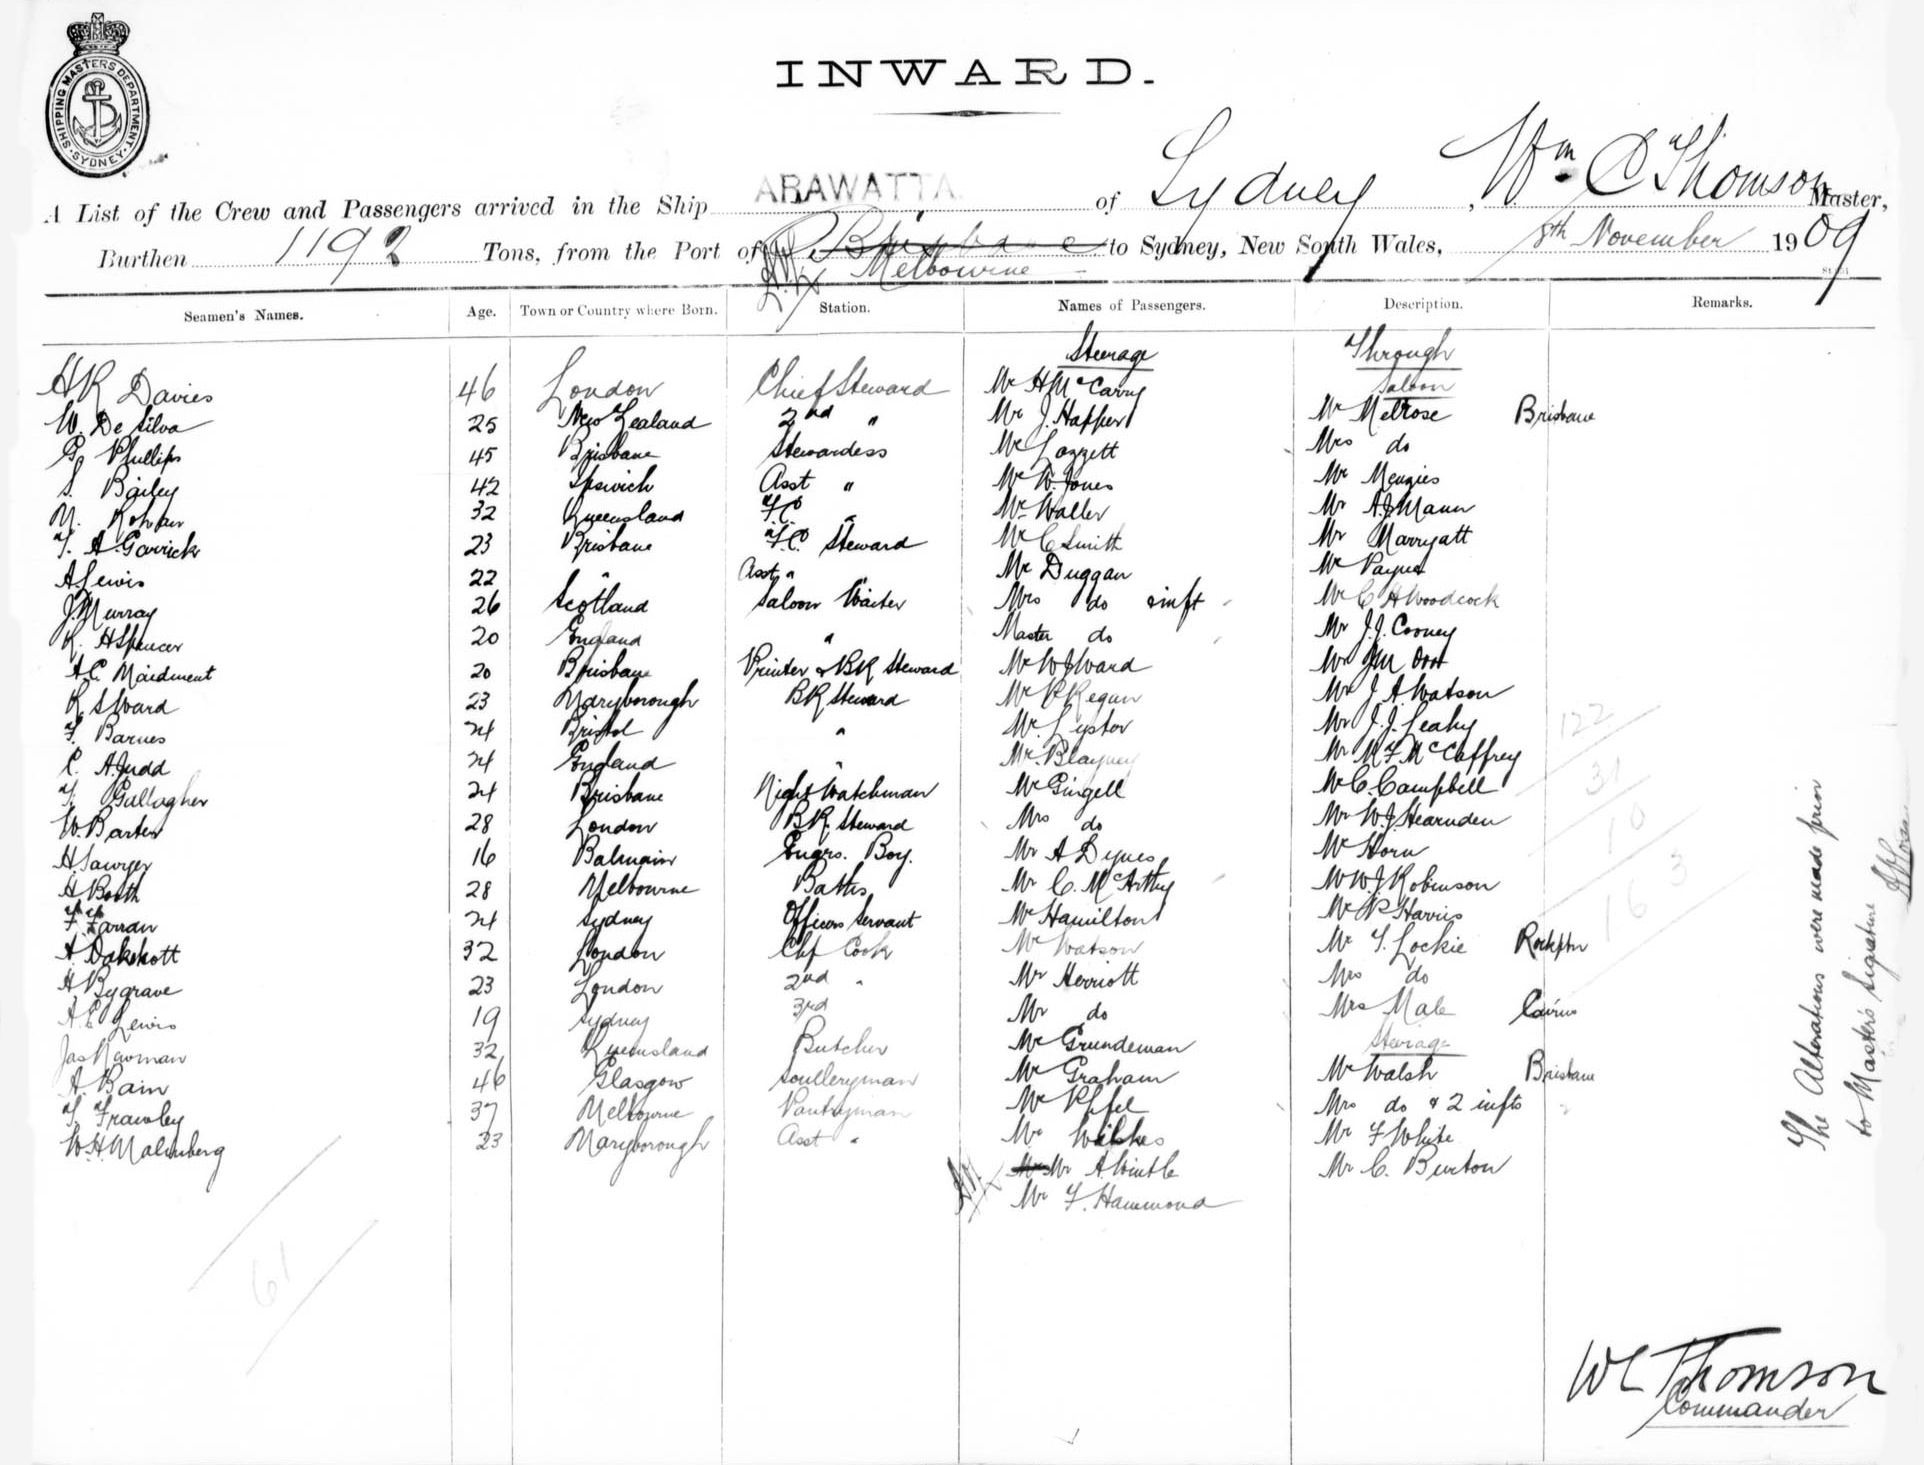 SHIPPING MASTERS DEPARTMENT
SYDNEY
INWARD.
A List of the Crew and Passengers arrived in the Ship ARAWATTA of Sydney, Wm C Thomson Master,
Burthen 1192 Tons, from the Port of Brisbane to Sydney, New South Wales, 8th November 1909
Melbourne
Seamen's Names. Age. Town or Country where Born. Station. Names of Passengers. Description. Remarks.
Steerage Through
H R Davies 46 London Chief Steward Mr H McCarry Saloon
W. De Silva 25 New Zealand 2nd " Mr J. Happer Mr Melrose Brisbane
G. Phillips 45 Brisbane Stewardess Mr Lozzett Mrs do
S. Bailey 42 Ipswich Asst " Mr W. Jones Mr Menzies
M. Rohan 32 Queensland F.C. " Mr Waller Mr A J Mann
T. A Garrick 23 Brisbane F.C. Steward Mr C Smith Mr Marryatt
A Lewis 22 " Asst " Mr Duggan Mr Payne
J. Murray 26 Scotland Saloon Waiter Mrs do & inft Mr C H Woodcock
R. H Spencer 20 England " Master do Mr J.J. Cooney
A C Maidment 20 Brisbane Printer & BR Steward Mr W J Ward Mr J M Orr
R S Ward 23 Maryborough BR Steward Mr P Regan Mr J A Watson
F. Barnes 24 Bristol " Mr Lyster Mr J.J. Leahy
C. A. Judd 24 England " Mr. Blayney Mr M F McCaffrey
T. Gallagher 24 Brisbane Night Watchman Mr Gingell Mr C. Campbell
W. Barter 28 London BR. Steward Mrs do Mr W J Hearnden
H Sawyer 16 Balmain Engrs. Boy. Mr A Dynes Mr Horn
H Booth 28 Melbourne Baths Mr C. McArthy Mr W J Robinson
F Farran 24 Sydney Officers Servant Mr Hamilton Mr P Harris
A. Dakshott 32 London Chf Cook Mr Watson Mr T. Lockie Rockptn
H Bygrave 23 London 2nd " Mr Herriott Mrs do
A. E Lewis 19 Sydney 3rd Mr do Mrs Male Cairns
Jas Newman 32 Queensland Butcher Mr Grundeman Steerage
A. Bain 46 Glasgow Sculleryman Mr Graham Mr Walsh Brisbane
T. Frawley 37 Melbourne Pantryman Mr Pfefel Mrs do & 2 infts
W. H Malmberg 23 Maryborough Asst " Mr Wilkes Mr F White
Mr A Wintle Mr C. Burton
Mr F. Hammond
61
122
31
10
16 3
The Alterations were made prior
to Master's Signature
W C Thomson
Commander